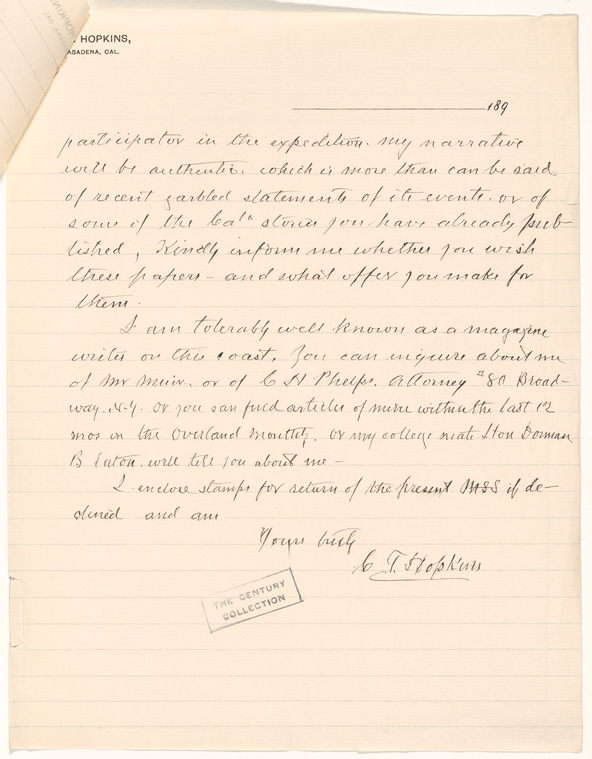 HOPKINS,
ASADENA, CAL.
189
participator in the expedition. my narrative
will be authentic. which is more than can be said
of recent garbled statements of its events. or of
some of the Cala stories you have already pub-
lished, Kindly inform me whether you wish
these papers – and what offer you make for
them.
I am tolerably well known as a magazine
writer on this coast. You can inquire about me
of Mr Muir. or of C H Phelps. Attorney #80 Broad-
way. N.Y. Or you can find articles of mine within the last 12
mos in the Overland Monthly. Or my college mate Hon Dorman
B. Eaton. will tell you about me –
I enclose stamps for return of the present MSS if de-
clined and am
Yours truly
C. T. Hopkins
THE CENTURY
COLLECTION